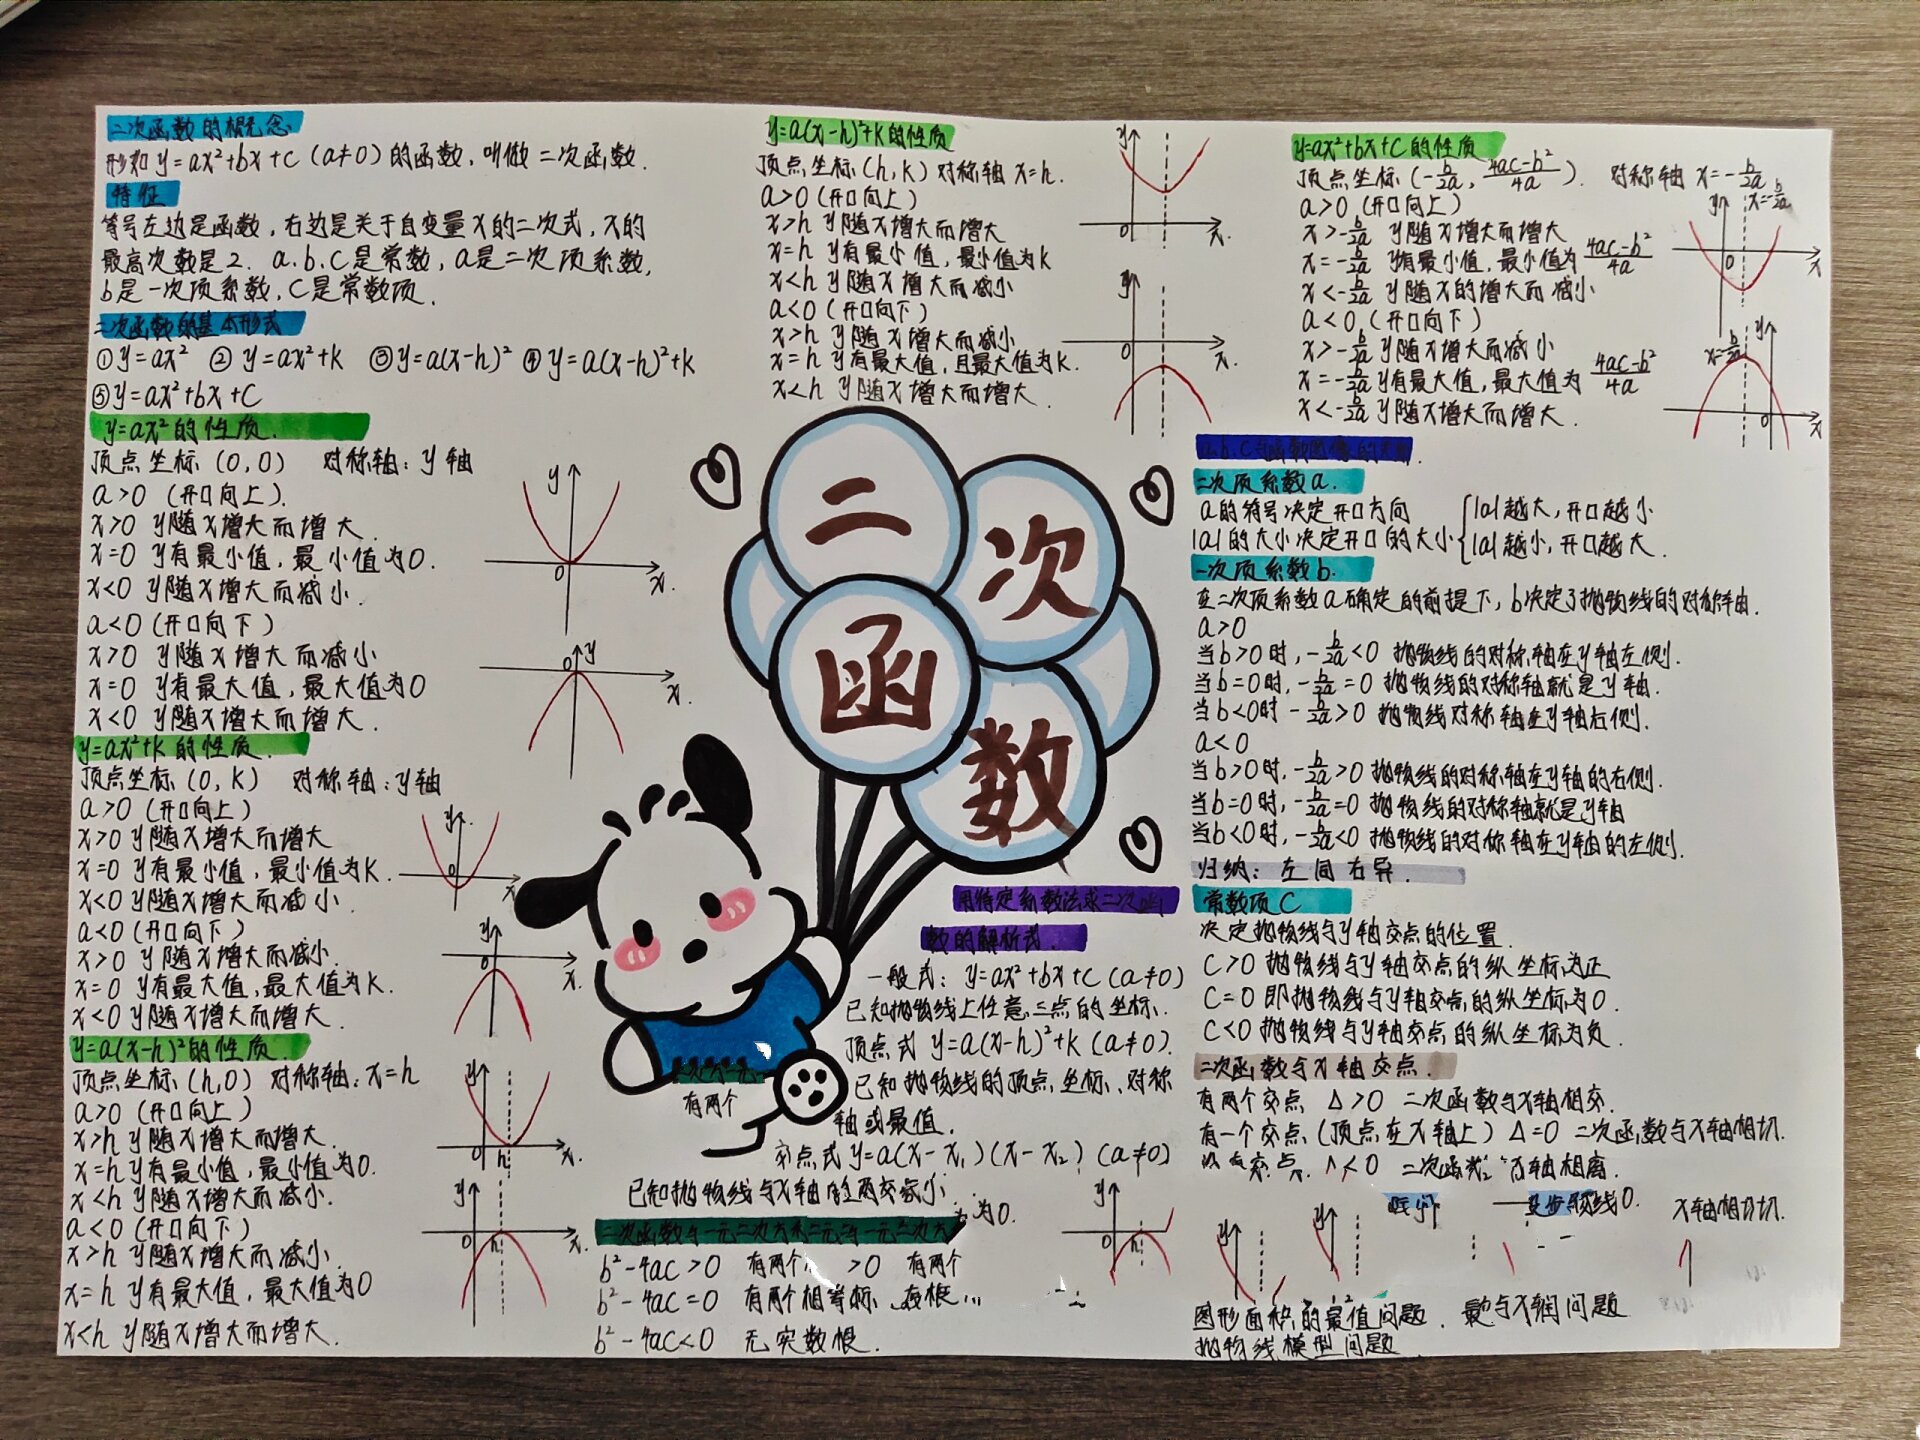 二次函数的概念
形如 y=ax²+bx+c (a≠0) 的函数,叫做二次函数.
特征
等号左边是函数,右边是关于自变量x的二次式,x的
最高次数是2. a.b.c是常数,a是二次项系数,
b是一次项系数,c是常数项.
二次函数的基本形式
①y=ax² ②y=ax²+k ③y=a(x-h)² ④y=a(x-h)²+k
⑤y=ax²+bx+c
y=ax²的性质.
顶点坐标(0,0) 对称轴:y轴
a>0 (开口向上).
x>0 y随x增大而增大.
x=0 y有最小值,最小值为0.
x<0 y随x增大而减小.
a<0 (开口向下)
x>0 y随x增大而减小
x=0 y有最大值,最大值为0
x<0 y随x增大而增大.
y=ax²+k的性质.
顶点坐标(0,k) 对称轴:y轴
a>0 (开口向上)
x>0 y随x增大而增大
x=0 y有最小值,最小值为k.
x<0 y随x增大而减小.
a<0 (开口向下)
x>0 y随x增大而减小.
x=0 y有最大值,最大值为k.
x<0 y随x增大而增大.
y=a(x-h)²的性质.
顶点坐标(h,0) 对称轴:x=h
a>0 (开口向上)
x>h y随x增大而增大.
x=h y有最小值,最小值为0.
x<h y随x增大而减小.
a<0 (开口向下)
x>h y随x增大而减小.
x=h y有最大值,最大值为0
x<h y随x增大而增大.
y=a(x-h)²+k的性质
顶点坐标(h,k) 对称轴x=h.
a>0 (开口向上)
x>h y随x增大而增大
x=h y有最小值,最小值为k
x<h y随x增大而减小
a<0 (开口向下)
x>h y随x增大而减小
x=h y有最大值,且最大值为k.
x<h y随x增大而增大.
二
次
函
数
有两个
用待定系数法求二次函
数的解析式.
一般式: y=ax²+bx+c (a≠0)
已知抛物线上任意三点的坐标.
顶点式 y=a(x-h)²+k (a≠0).
已知抛物线的顶点坐标、对称
轴或最值.
交点式 y=a(x-x₁)(x-x₂) (a≠0)
已知抛物线与x轴
为0.
b²-4ac>0 有两个 >0 有两个
b²-4ac=0 有两个相等
b²-4ac<0 无实数根.
y=ax²+bx+c的性质
顶点坐标 (-b/2a, 4ac-b²/4a). 对称轴 x=-b/2a
a>0 (开口向上)
x>-b/2a y随x增大而增大
x=-b/2a y有最小值,最小值为 4ac-b²/4a
x<-b/2a y随x的增大而减小
a<0 (开口向下)
x>-b/2a y随x增大而减小
x=-b/2a y有最大值,最大值为 4ac-b²/4a
x<-b/2a y随x增大而增大.
二次项系数a.
a的符号决定开口方向
|a|的大小决定开口的大小{|a|越大,开口越小
|a|越小,开口越大.
一次项系数b.
在二次项系数a确定的前提下,b决定了抛物线的对称轴.
a>0
当b>0时,-b/2a<0 抛物线的对称轴在y轴左侧.
当b=0时,-b/2a=0 抛物线的对称轴就是y轴.
当b<0时 -b/2a>0 抛物线对称轴在y轴右侧.
a<0
当b>0时,-b/2a>0 抛物线的对称轴在y轴的右侧.
当b=0时,-b/2a=0 抛物线的对称轴就是y轴
当b<0时,-b/2a<0 抛物线的对称轴在y轴的左侧.
归纳: 左同右异.
常数项C
决定抛物线与y轴交点的位置.
C>0 抛物线与y轴交点的纵坐标为正
C=0 即抛物线与y轴交点的纵坐标为0.
C<0 抛物线与y轴交点的纵坐标为负.
二次函数与x轴交点.
有两个交点 Δ>0 二次函数与x轴相交.
有一个交点(顶点在x轴上) Δ=0 二次函数与x轴相切.
交点. <0 二次函数 轴相离.
图形面积的最值问题.
抛物线模型问题